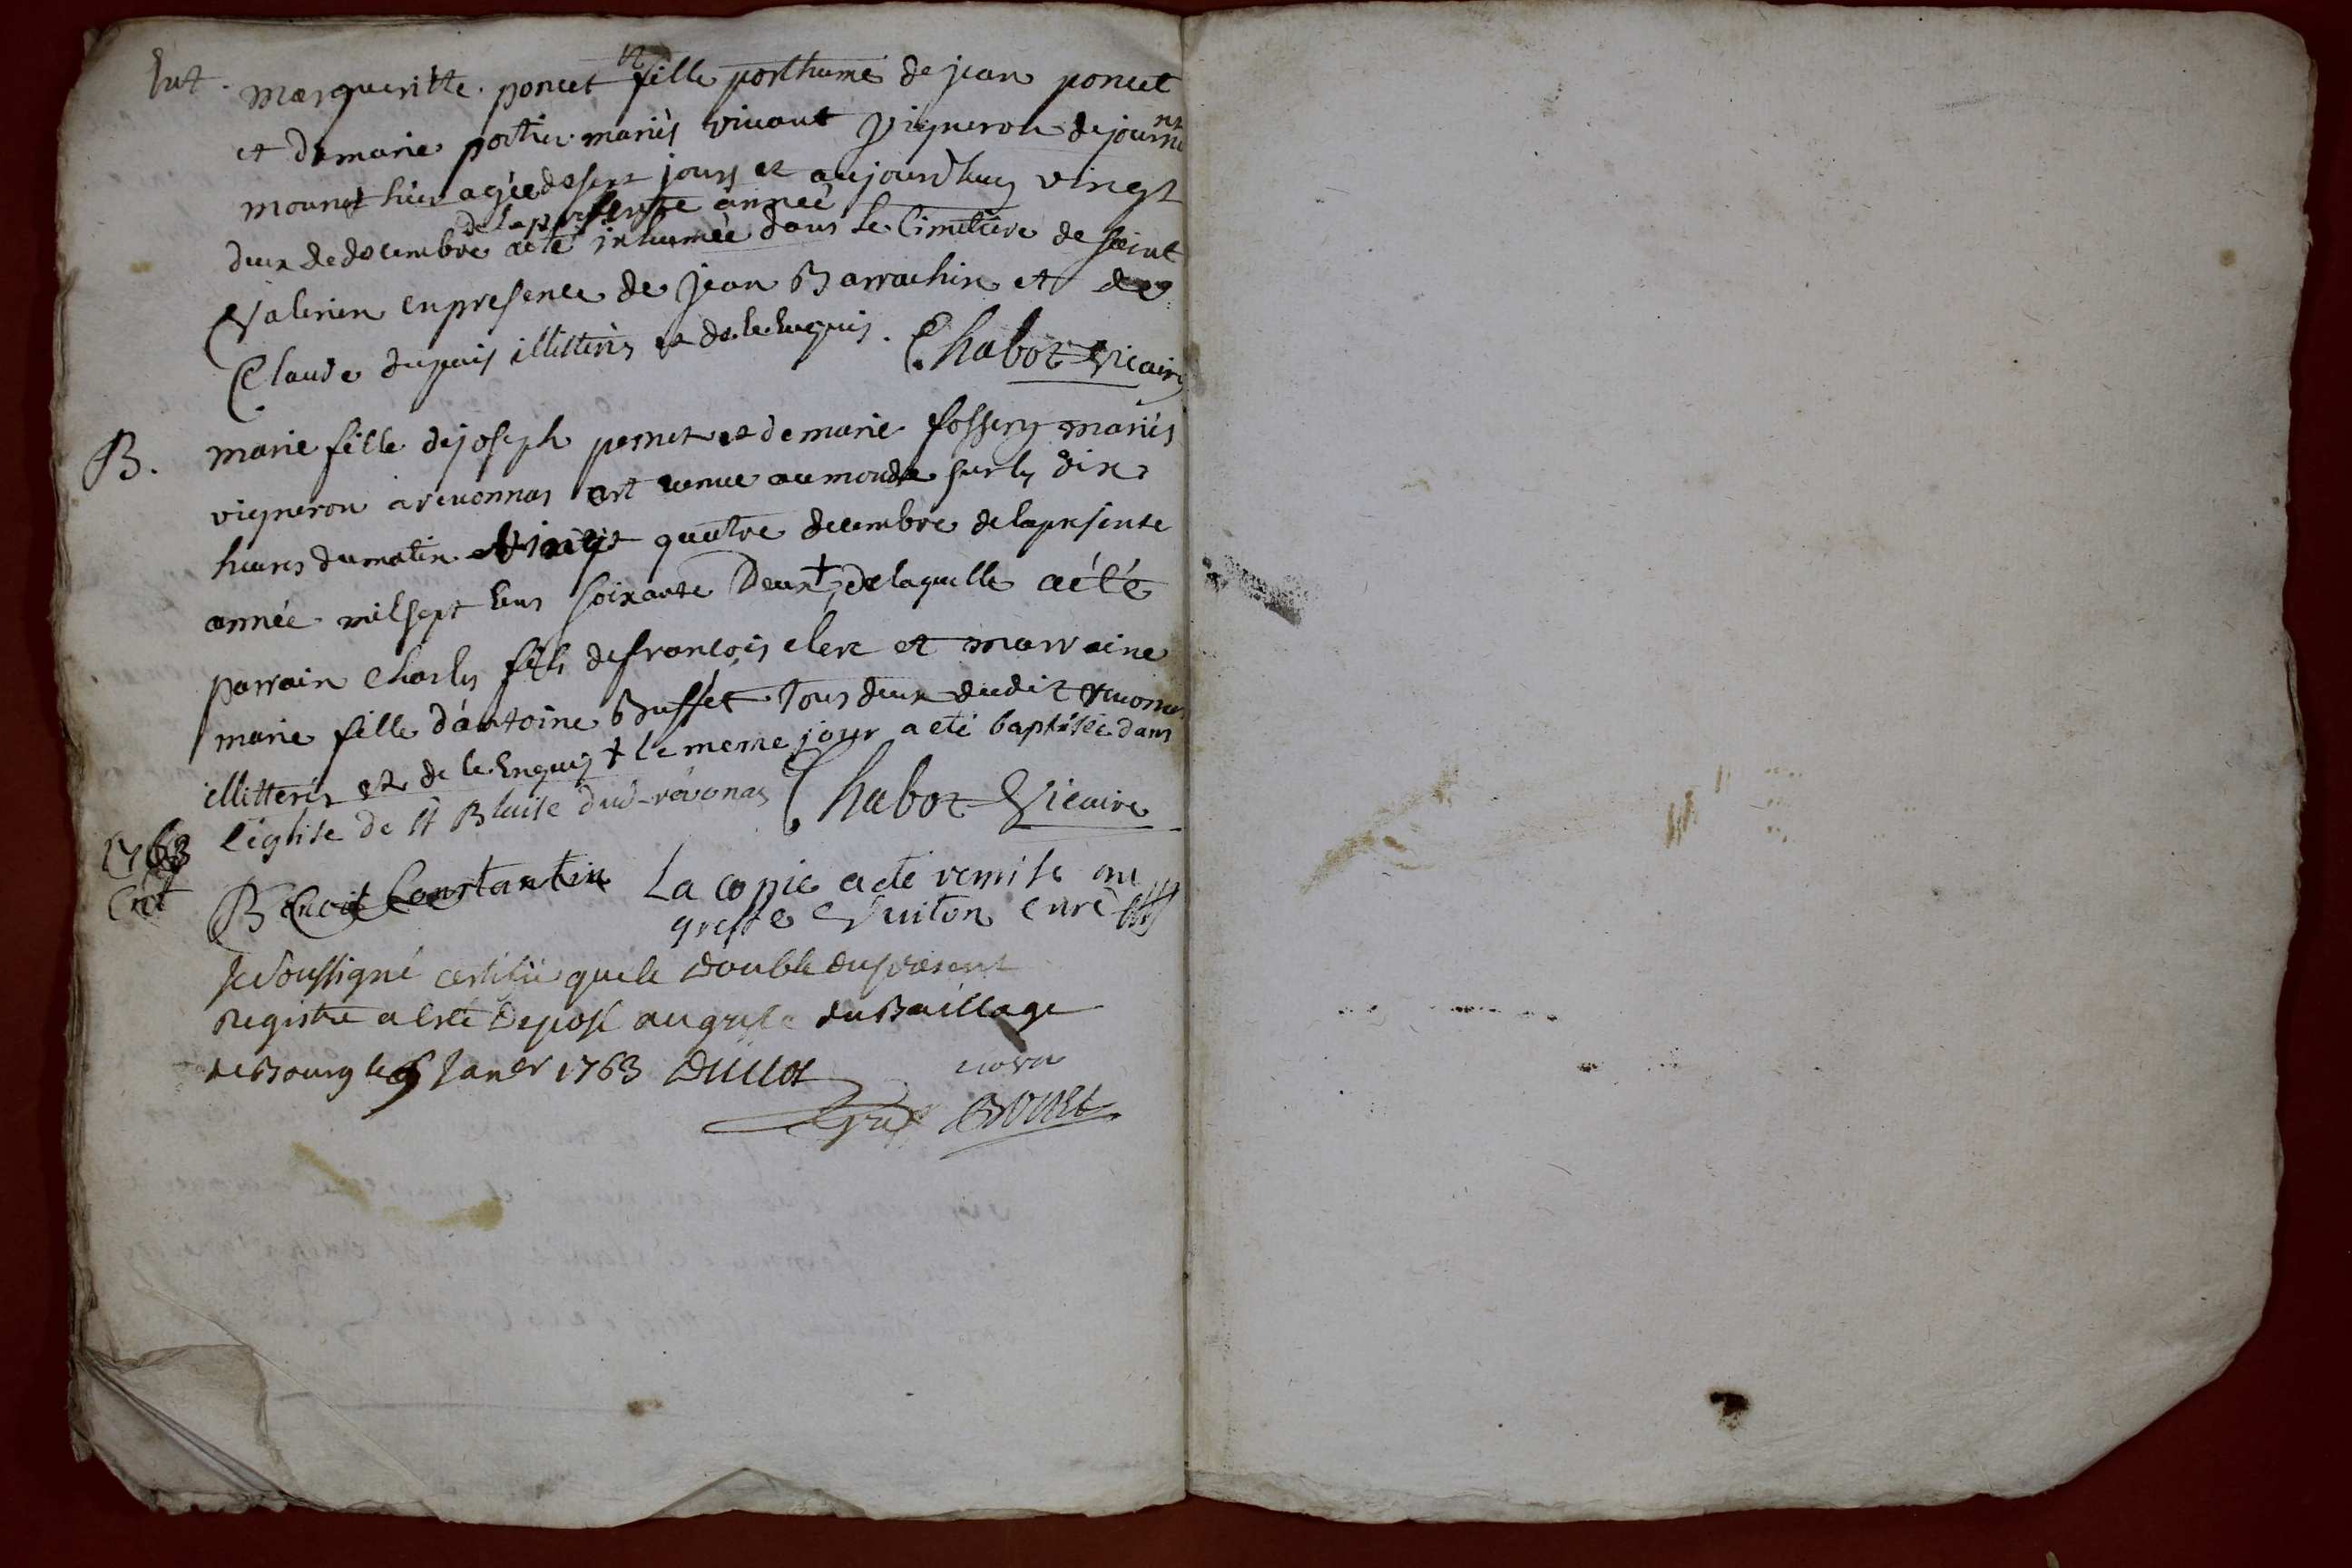 Ent. margueritte. poncet fille posthume de jean poncet
et de marie portier mariés vivant vigneron de journ
mourut hier agée de sept jours et aujourdhuy vingt
de la presente année
deux de decembre a eté inhumée dans le Cimetiere de saint
Valerien en presence de jean Barrachin et de
Claude dupuis illitterés et de le enquis. Chabot vicaire
B. marie fille de joseph pernet et de marie fossery mariés
vigneron a revonnas est venue au monde sur les dix
heures du matin vingt quatre decembre de la presente
année mil sept cens soixante Deux + de laquelle a été
parrain Charles fils de francois clerc et marraine
marie fille d'antoine Buffet tous deux dudit revonnas
illitterés et de le enquis + le meme jour a eté baptisée dans
l'église de st Blaise dud revonas Chabot Vicaire
1763
Ent Benoit Constantin La copie a eté remise au
greffe Vuiton curé
Je Soussigné certifie que le double du present
Registre a esté deposé au greffe du Baillage
de Bourg le 6 Janer 1763